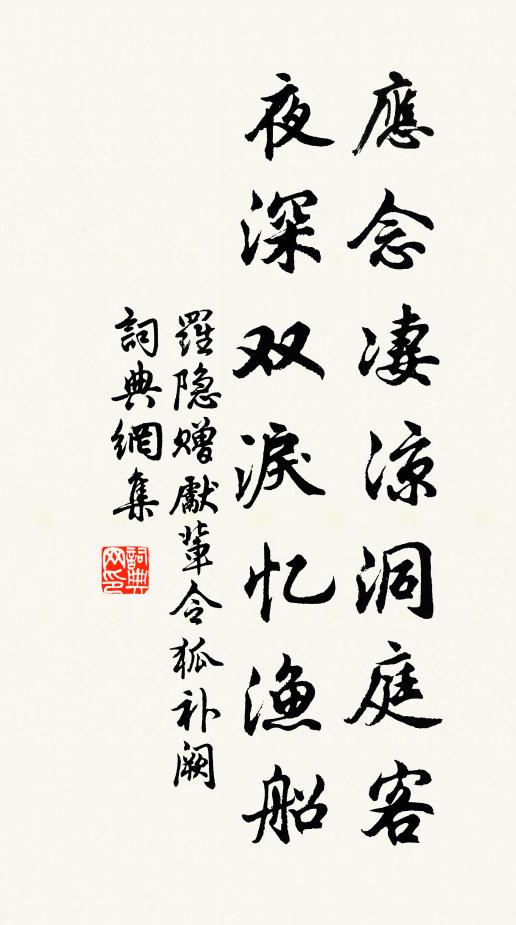 應念凄涼洞庭客
夜深双淚忆漁船
羅隐贈獻輩令狐补阙
詞典網集
詞典网印